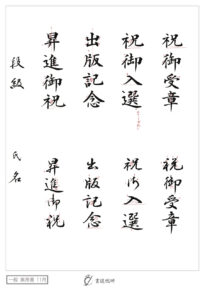 祝御受章
祝御入選
出版記念
昇進御祝
段級
祝御受章
祝御入選
出版記念
昇進御祝
氏名
一般 実用書 11月